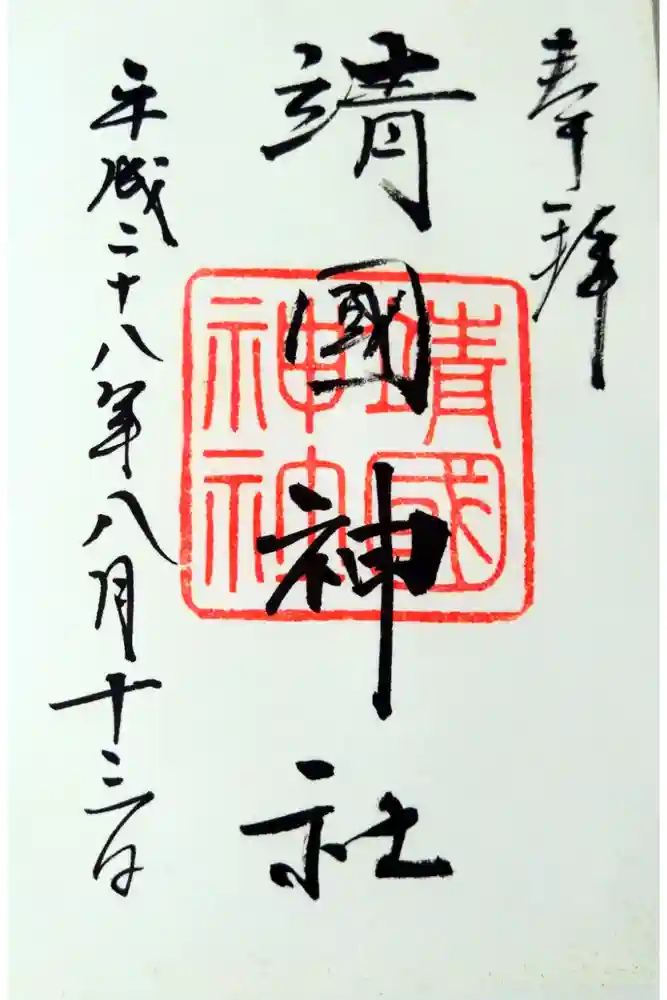 奉拝
靖國神社
靖國
神社
平成二十八年八月十三日